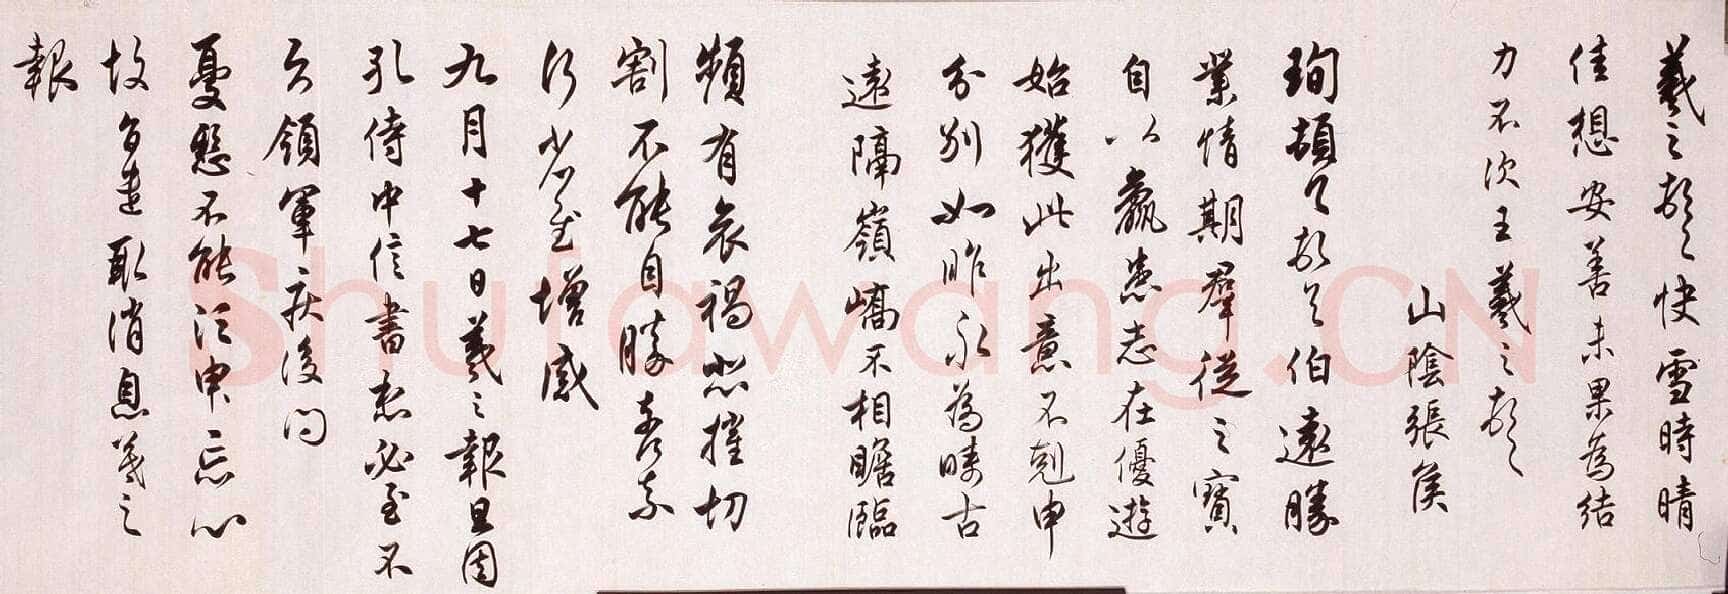 羲之頓首快雪時晴
佳想安善未果為結
力不次王羲之頓首
山陰張侯
珣頓首頓首伯遠勝
業情期羣從之寶
自以羸患志在優遊
始獲此出意不剋申
分別如昨永為疇古
遠隔嶺嶠不相瞻臨
頻有哀禍悲摧切
割不能自勝奈何奈
何省慰增感
九月十七日羲之報且因
孔侍中信書想必至不
知領軍疾後問
憂懸不能須臾忘心
故旨遣取消息羲之
報
Shufawang.CN